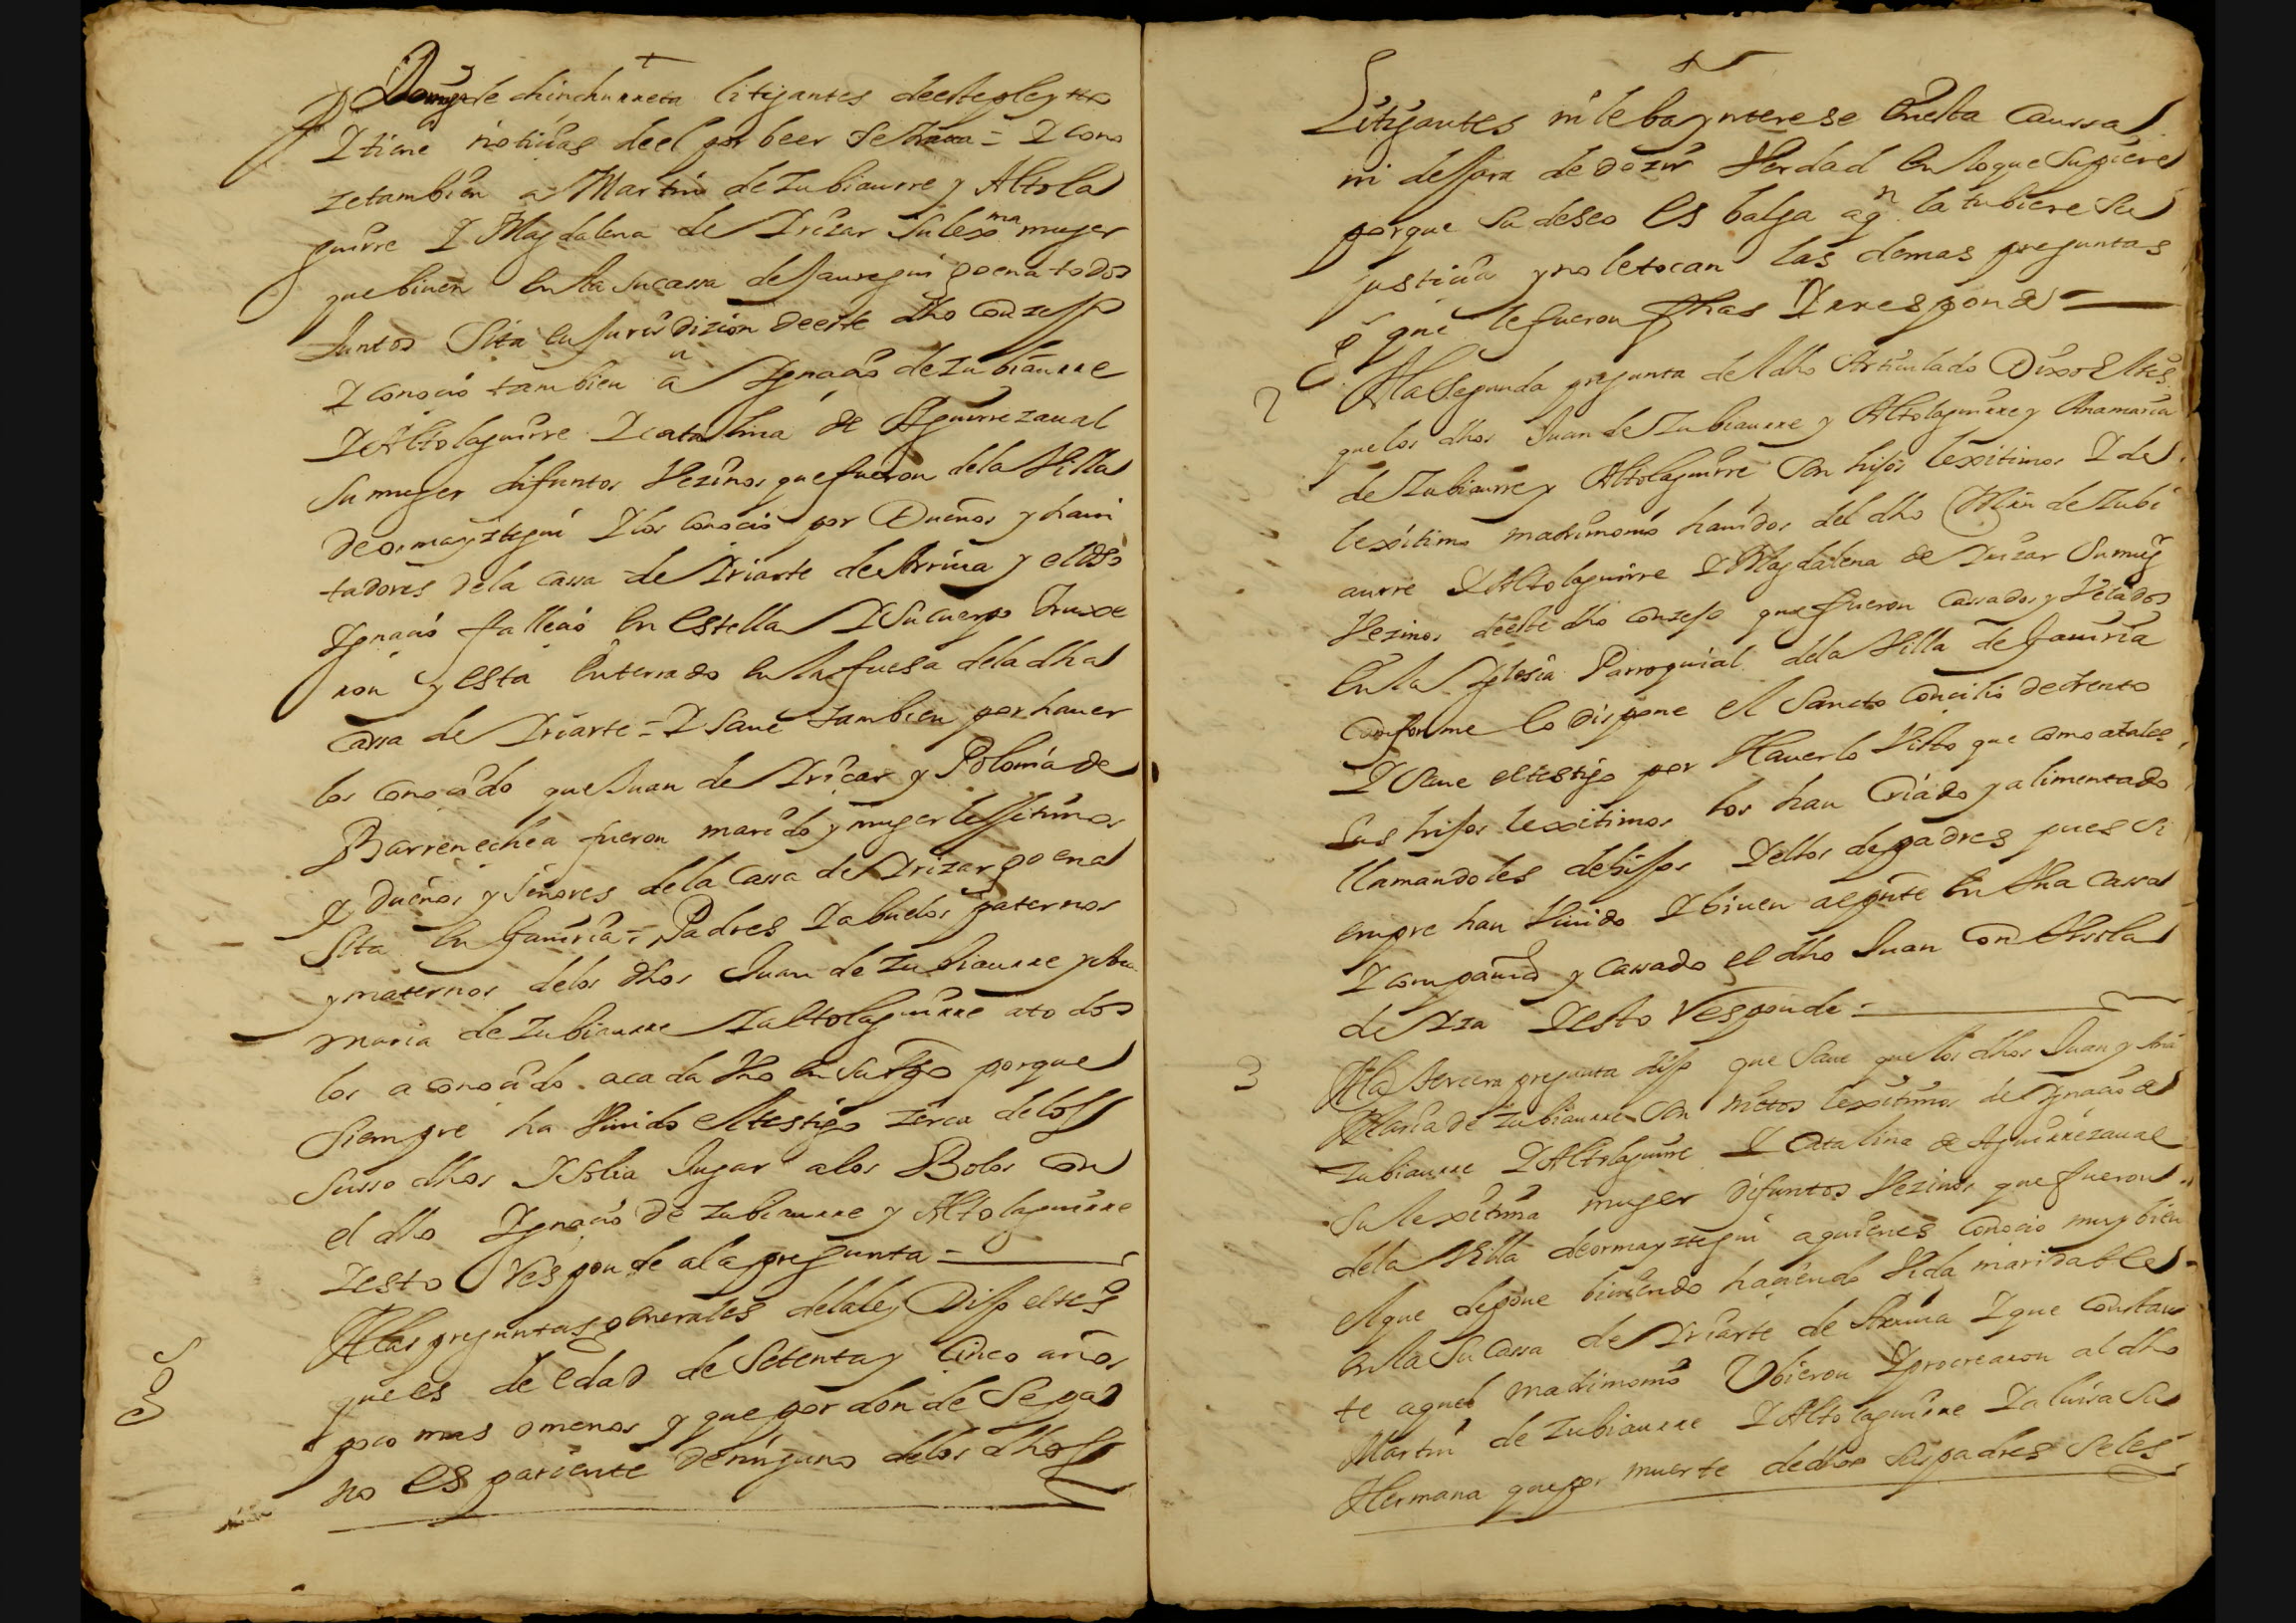 Domingo de chinchurreta litigantes deeste pleyto
Y tiene notiçias deel por beer se trata = Y cono
ze tambien a Martin de Zubiaurre y Altola
guirre Y Magdalena de Yrizar su lexma muger
que biuen en la su cassa de Jauregui goena todos
Juntos sita en Jurisdizion deeste dho Conzejo
Y conoçio tambien a Ygnaçio de Zubiaurre
Y Altolaguirre Y catalina de Aguirrezaual
su muger difuntos Vezinos que fueron dela Villa
de ormayztegui Y los conoçio por Dueños y haui
tadores dela cassa de Yriarte de Arriua y el dho
Ygnaçio falleçio en estella Y su cuerpo truxe
ron y esta enterrado en la fuesa dela dha
Cassa de Yriarte = Y saue tambien por hauer
los conoçido que Juan de Yriçar y Polonia de
Barrenechea fueron marido y muger lexitimos
Y dueños y señores dela Cassa de Yrizar goena
sita en gauiria = Padres Y abuelos paternos
y maternos delos dhos Juan de Zubiaurre y Ana
maria de Zubiaurre Y altolaguirre a todos
los a conoçido a cada Vno en su tpo porque
siempre ha Viuido el testigo zerca delos
susso dhos Y solia Jugar alos Bolos con
el dho Ygnaçio de Zubiaurre y Altolaguirre
Y esto Responde ala pregunta =
Alas preguntas generales dela ley Dijo el tesº
que es de edad de Setenta y Cinco años
poco mas o menos y que por donde se pa
no es pariente de ninguno delos dhos
Litigantes ni le ba ynterese en esta Caussa
ni dejara de dezir Verdad en lo que supiere
porque su deseo es balga a qn la tubiere su
justiçia y no le tocan las demas preguntas
que le fueron fhas Y rresponde =
2 Ala Segunda pregunta del dho Articulado Dixo el tesº
que los dhos Juan de Zubiaurre y Altolaguirre y Anamaria
de Zubiaurre y Altolaguirre son hijos lexitimos Y de
lexitimo matrimonio hauidos del dho Mrn de Zubi
aurre Y Altolaguirre Y Magdalena de Yrizar su mugr
Vezinos deeste dho conzejo que fueron Cassados y Velados
en la Yglesia Parroquial dela Villa de gauiria
Conforme lo dispone el Sancto Conçilio de trento
Y Saue el testigo por Hauerlo Visto que como a tales
sus hijos lexitimos los han Criado y alimentado
llamandoles de hijos Y ellos de padres pues si
empre han Viuido Y biuen al pnte en Vna Cassa
Y compañia y Cassado el dho Juan con Vrsola
de Yza Y esto Responde =
3 Ala tercera pregunta dijo que Saue que los dhos Juan y Ana
Maria de Zubiaurre son nietos lexitimos de Ygnaçio de
Zubiaurre Y Altolaguirre Y Catalina de Aguirrezaual
su lexitima muger difuntos Vezinos que fueron
dela Villa de ormayztegui a quienes conoçio muy bien
el que depone biuiendo haçiendo Vida maridable
en la su Cassa de Yriarte de Arriua Y que Constan
te aquel matrimonio Vbieron Y procrearon al dho
Martin de Zubiaurre Y Altolaguirre Y a luisa su
Hermana que por muerte de dhos sus padres se les